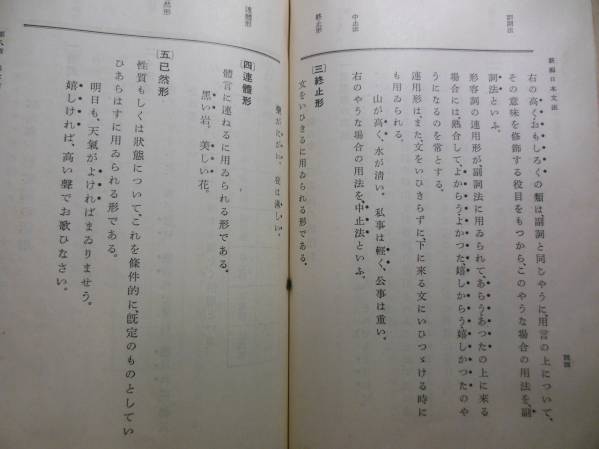 新編日本文法
四四
副詞法
中止法
終止形
右の高くおもしろくの類は、副詞と同じやうに、用言の上について、
その意味を修飾する役目をもつから、このやうな場合の用法を、副
詞法といふ。
形容詞の連用形が、副詞法に用ゐられて、あらう、あつたの上に來る
場合には、熟合して、よからう、よかつた、嬉しからう、嬉しかつたのや
うになるのを常とする。
連用形は、また、文をいひきらずに、下に來る文にいひつゞける時に
も用ゐられる。
山が高く、水が淸い。私事は輕く、公事は重い。
右のやうな場合の用法を、中止法といふ。
〔三〕終止形
文をいひきるに用ゐられる形である。
しい。
連體形
然形
〔四〕連體形
體言に連ねるに用ゐられる形である。
黑い岩、美しい花。
〔五〕已然形
性質もしくは狀態について、これを條件的に、旣定のものとしてい
ひあらはすに用ゐられる形である。
明日も、天氣がよければまゐりませう。
嬉しければ、高い聲でお歌ひなさい。